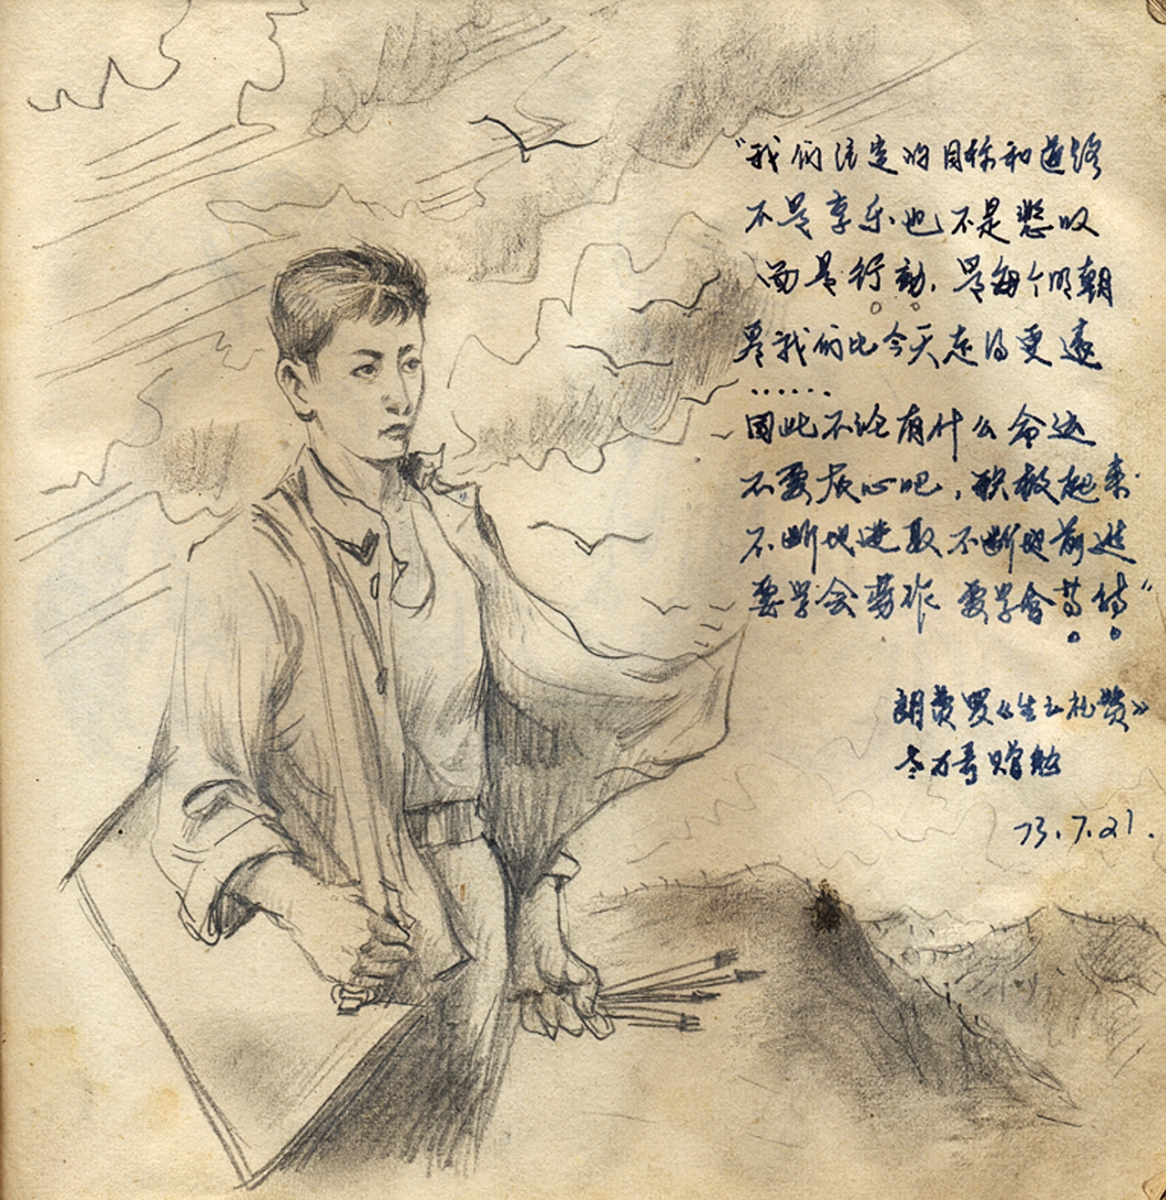 "我们注定的目标和道路
不是享乐也不是悲叹
而是行动，是每个明朝
是我们比今天走得更远
……
因此不论有什么命运
不要灰心吧，积极起来
不断地进取不断地前进
要学会劳作 要学会等待"
朗费罗《生之礼赞》
赠勉
73.7.21.